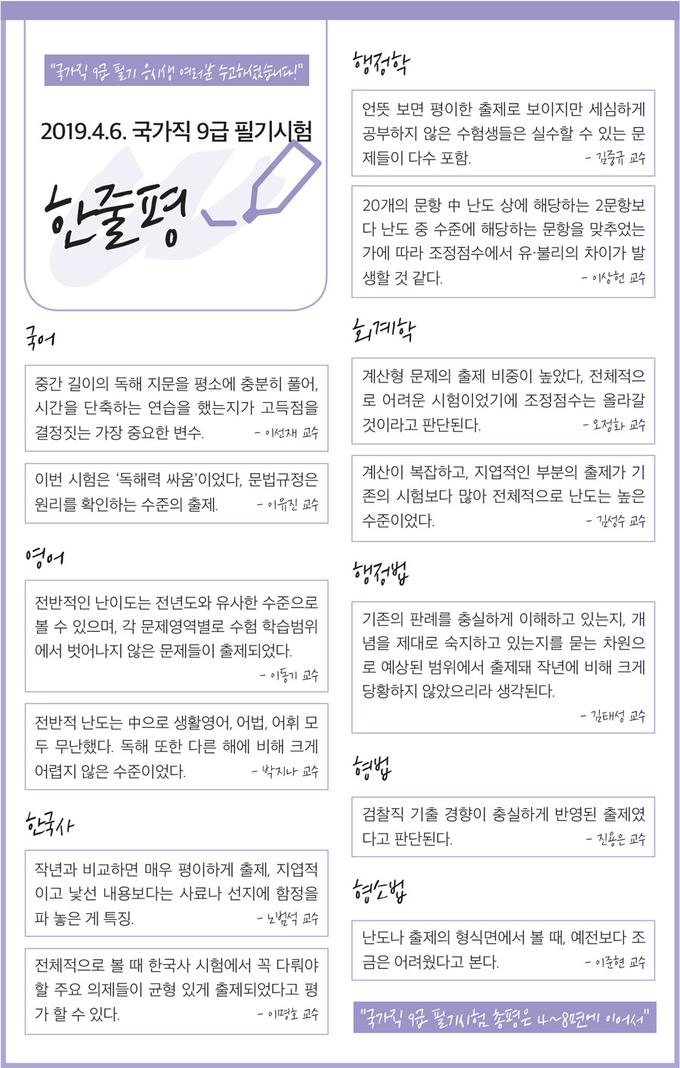 "국가직 9급 필기 응시생 여러분 수고하셨습니다!"
2019.4.6. 국가직 9급 필기시험
한줄평
국어
중간 길이의 독해 지문을 평소에 충분히 풀어,
시간을 단축하는 연습을 했는지가 고득점을
결정짓는 가장 중요한 변수. - 이선재 교수
이번 시험은 ‘독해력 싸움’이었다, 문법규정은
원리를 확인하는 수준의 출제. - 이유진 교수
영어
전반적인 난이도는 전년도와 유사한 수준으로
볼 수 있으며, 각 문제영역별로 수험 학습범위
에서 벗어나지 않은 문제들이 출제되었다.
- 이동기 교수
전반적 난도는 中으로 생활영어, 어법, 어휘 모
두 무난했다. 독해 또한 다른 해에 비해 크게
어렵지 않은 수준이었다. - 박지나 교수
한국사
작년과 비교하면 매우 평이하게 출제, 지엽적
이고 낯선 내용보다는 사료나 선지에 함정을
파 놓은 게 특징. - 노범석 교수
전체적으로 볼 때 한국사 시험에서 꼭 다뤄야
할 주요 의제들이 균형 있게 출제되었다고 평
가 할 수 있다. - 이명호 교수
행정학
언뜻 보면 평이한 출제로 보이지만 세심하게
공부하지 않은 수험생들은 실수할 수 있는 문
제들이 다수 포함. - 김중규 교수
20개의 문항 中 난도 상에 해당하는 2문항보
다 난도 중 수준에 해당하는 문항을 맞추었는
가에 따라 조정점수에서 유·불리의 차이가 발
생할 것 같다. - 이상헌 교수
회계학
계산형 문제의 출제 비중이 높았다, 전체적으
로 어려운 시험이었기에 조정점수는 올라갈
것이라고 판단된다. - 오정화 교수
계산이 복잡하고, 지엽적인 부분의 출제가 기
존의 시험보다 많아 전체적으로 난도는 높은
수준이었다. - 김성수 교수
행정법
기존의 판례를 충실하게 이해하고 있는지, 개
념을 제대로 숙지하고 있는지를 묻는 차원으
로 예상된 범위에서 출제돼 작년에 비해 크게
당황하지 않았으리라 생각된다.
- 김태성 교수
형법
검찰직 기출 경향이 충실하게 반영된 출제였
다고 판단된다. - 진용은 교수
형소법
난도나 출제의 형식면에서 볼 때, 예전보다 조
금은 어려웠다고 본다. - 이준현 교수
"국가직 9급 필기시험 총평은 4~8면에 이어서"